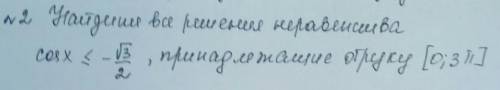 №2 Найдите все решения неравенства
cos x ≤ -√3/2, принадлежащие отрезку [0; 3π]